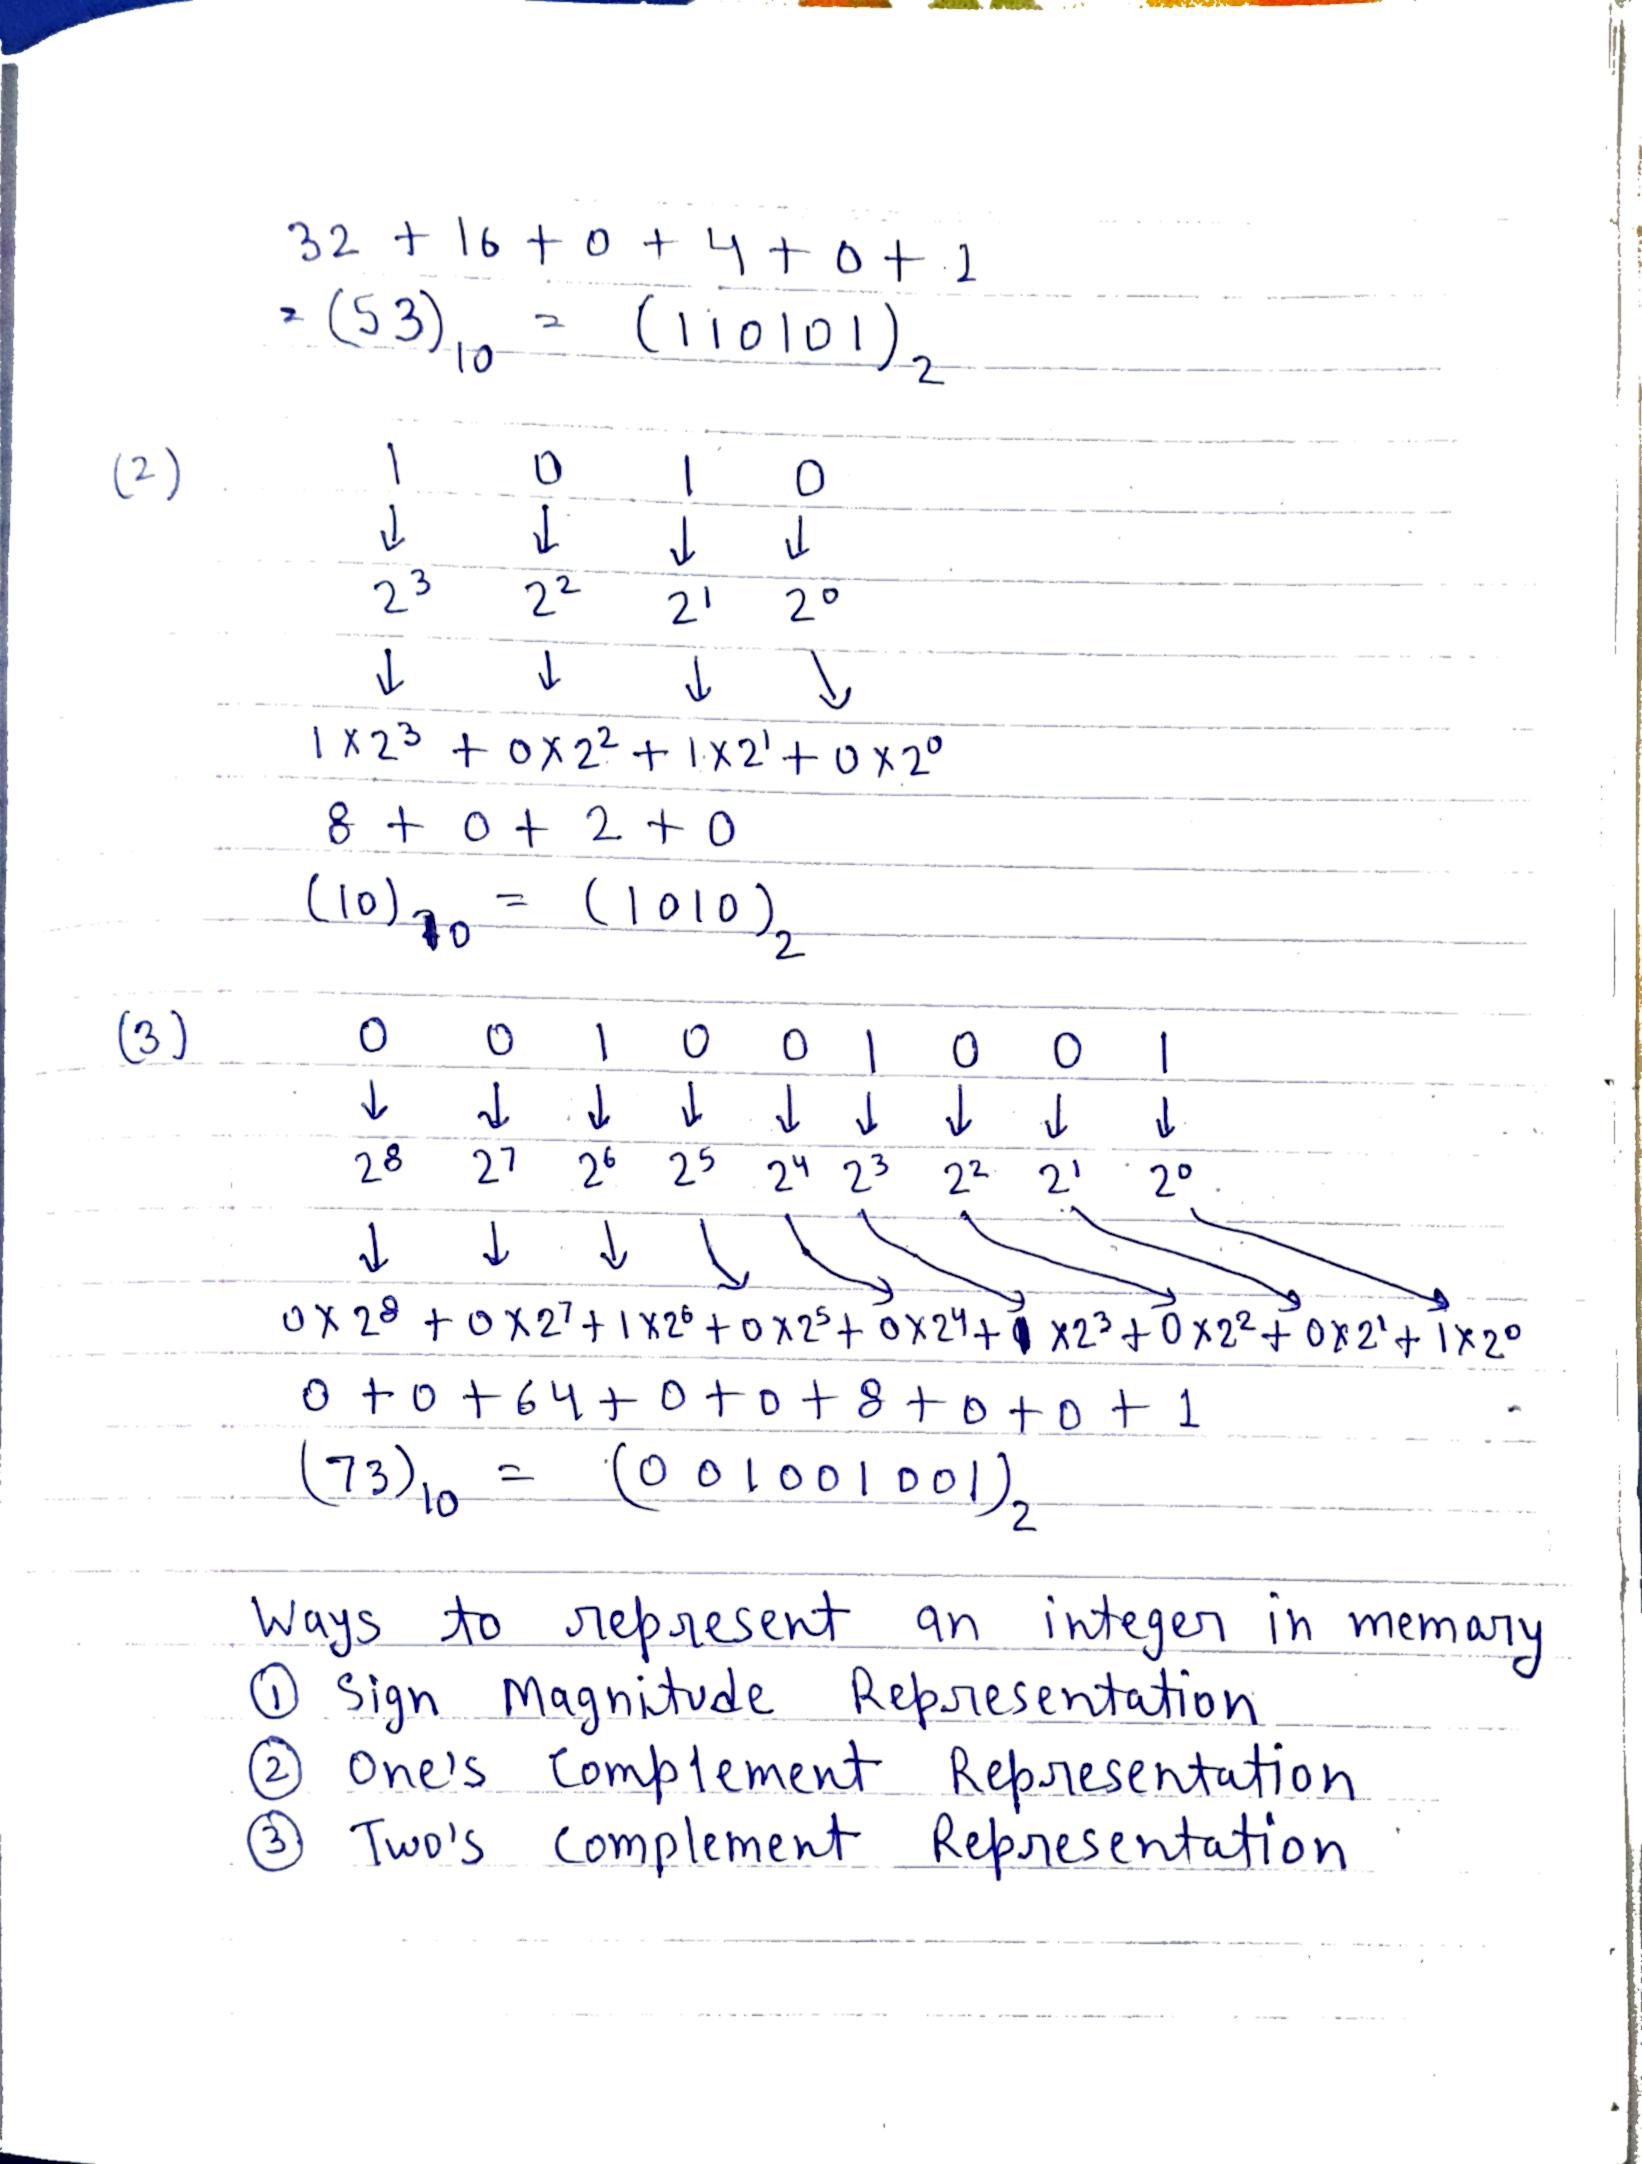 32 + 16 + 0 + 4 + 0 + 1
= (53)₁₀ = (110101)₂
(2) 1 0 1 0
↓ ↓ ↓ ↓
2³ 2² 2¹ 2⁰
↓ ↓ ↓ ↘
1×2³ + 0×2² + 1×2¹ + 0×2⁰
8 + 0 + 2 + 0
(10)₁₀ = (1010)₂
(3) 0 0 1 0 0 1 0 0 1
↓ ↓ ↓ ↓ ↓ ↓ ↓ ↓ ↓
2⁸ 2⁷ 2⁶ 2⁵ 2⁴ 2³ 2² 2¹ 2⁰
↓ ↓ ↓ ↘ ↘ ↘ ↘ ↘ ↘
0×2⁸ + 0×2⁷ + 1×2⁶ + 0×2⁵ + 0×2⁴ + 1×2³ + 0×2² + 0×2¹ + 1×2⁰
0 + 0 + 64 + 0 + 0 + 8 + 0 + 0 + 1
(73)₁₀ = (001001001)₂
Ways to represent an integer in memary
① Sign Magnitude Representation
② One's Complement Representation
③ Two's Complement Representation